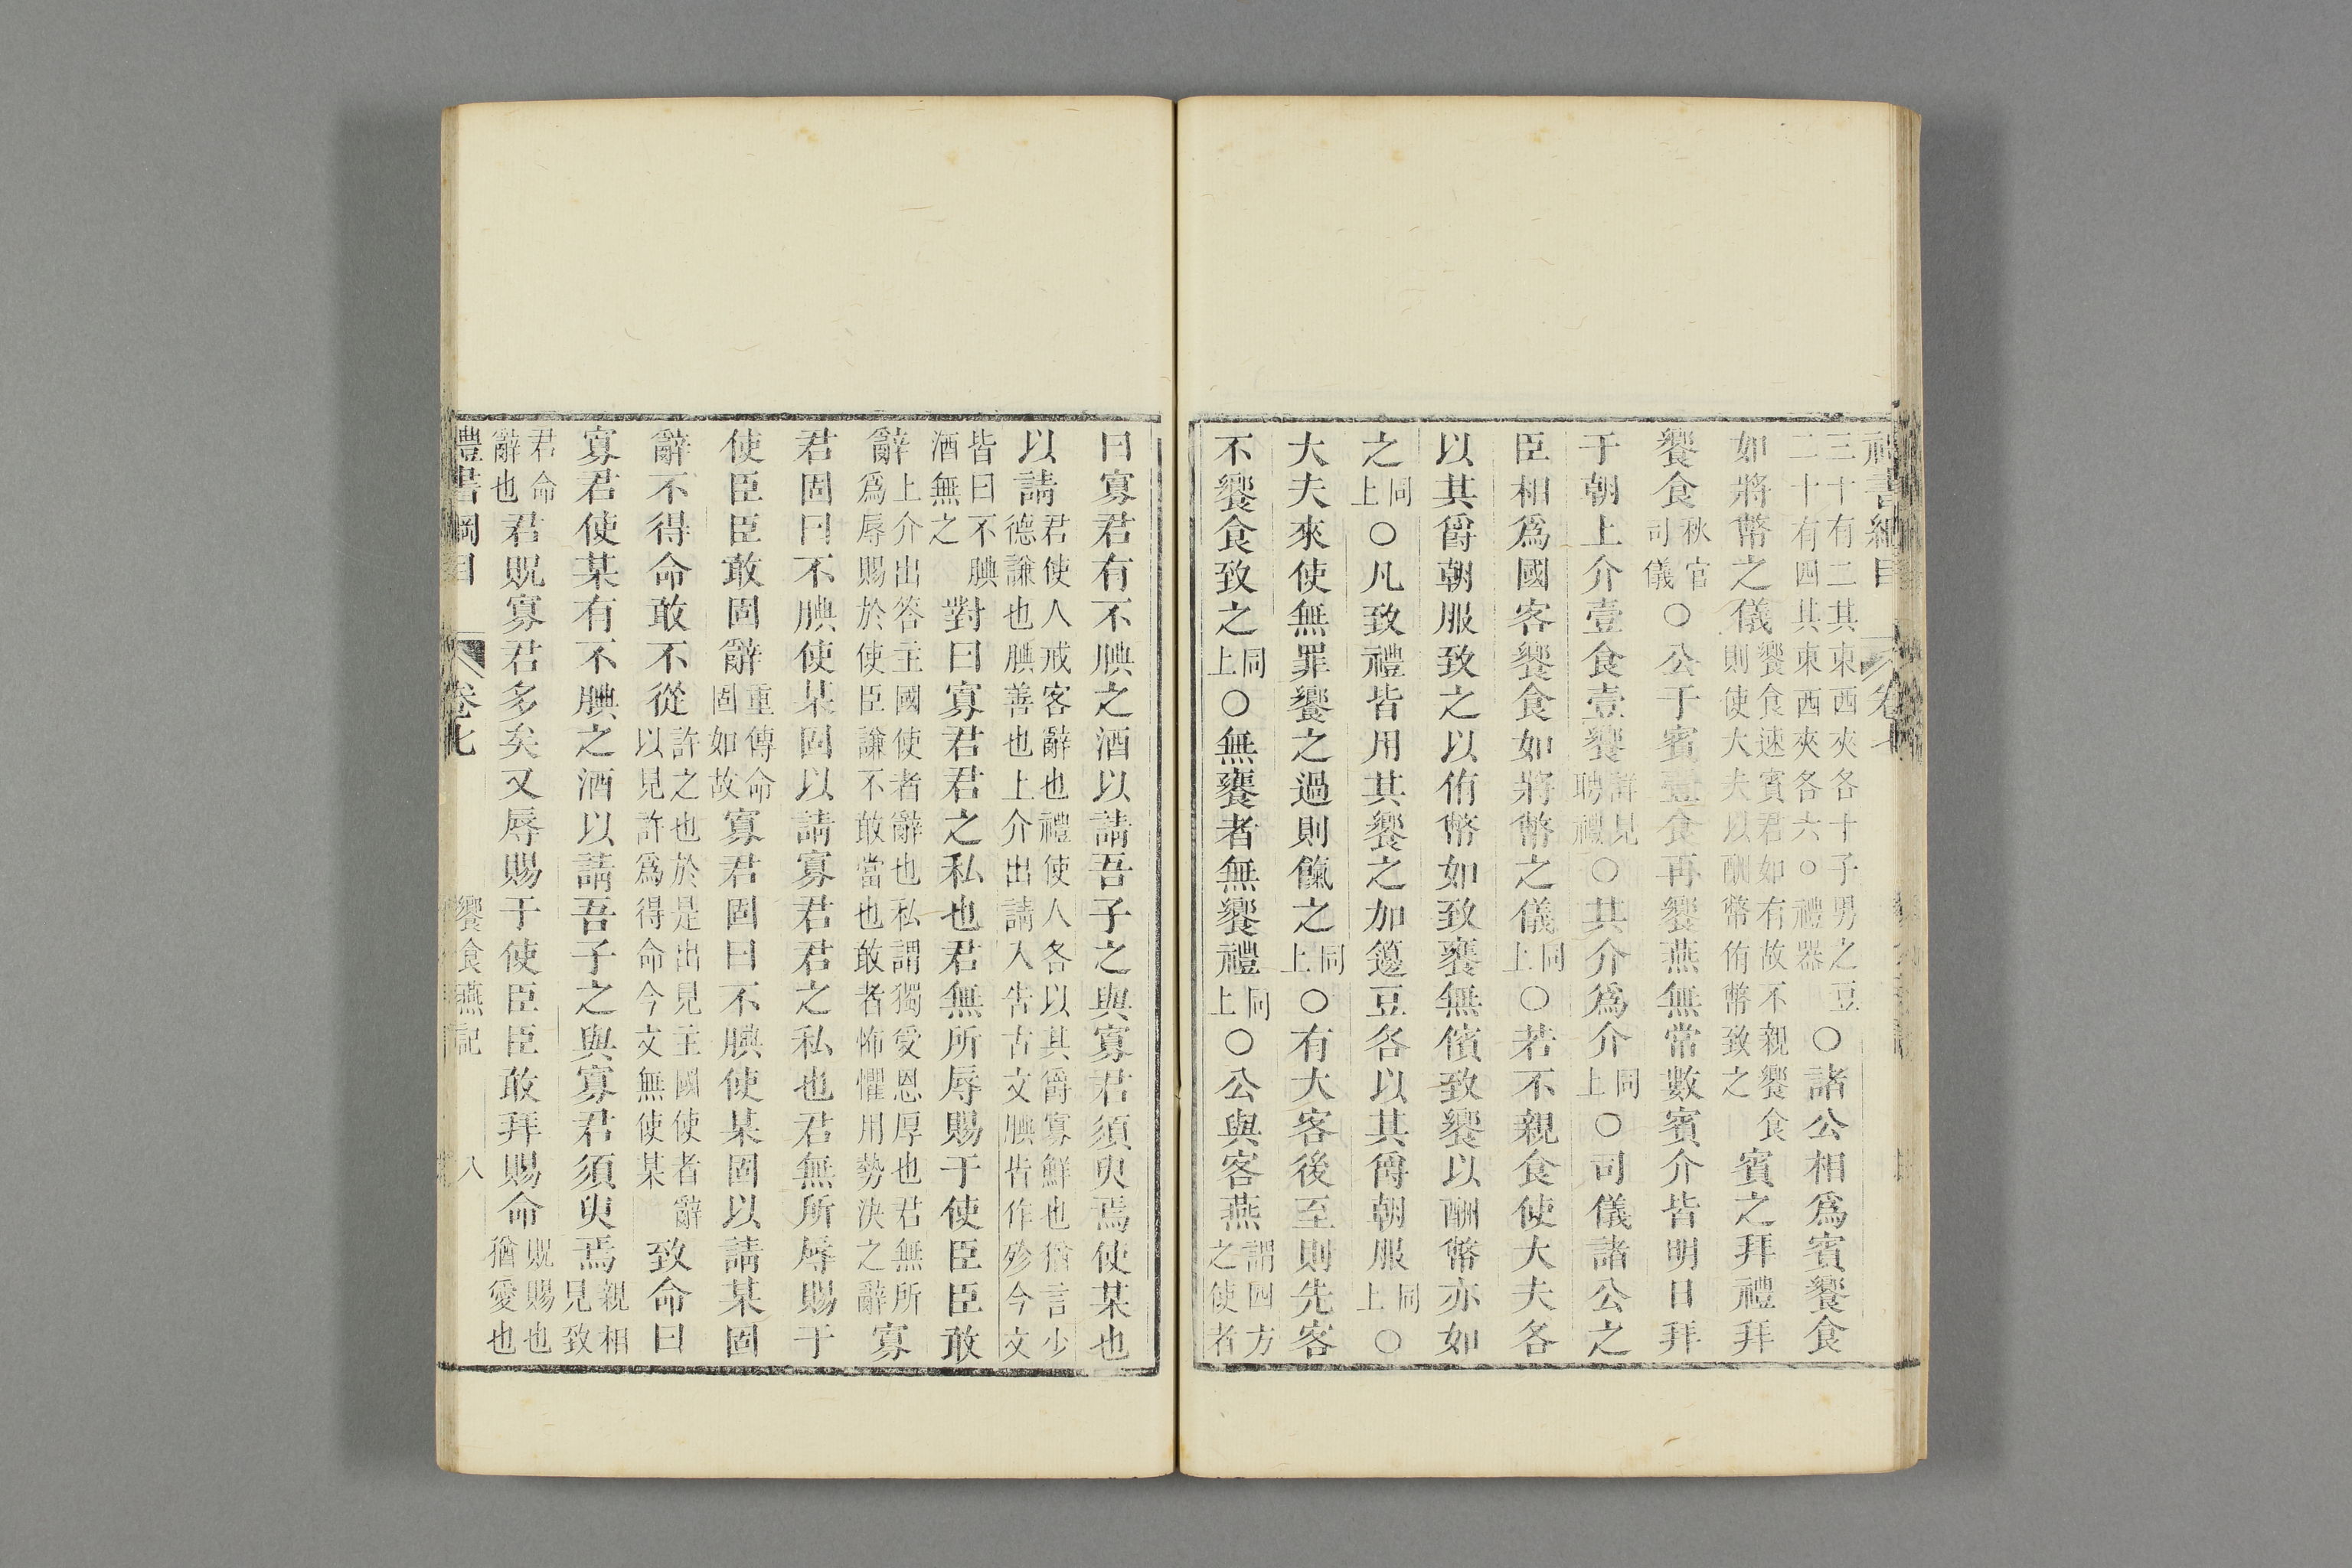 禮書綱目 卷七
三十有二其東西夾各十子男之豆二十有四其東西夾各六○禮器○諸公相爲賓饗食
如將幣之儀饗食速賓君如有故不親饗食則使大夫以酬幣侑幣致之賓之拜禮拜
饗食秋官司儀○公于賓壹食再饗燕無常數賓介皆明日拜
于朝上介壹食壹饗詳見聘禮○其介爲介同上○司儀諸公之
臣相爲國客饗食如將幣之儀同上○若不親食使大夫各
以其爵朝服致之以侑幣如致饔無儐致饗以酬幣亦如
之同上○凡致禮皆用其饗之加籩豆各以其爵朝服同上○
大夫來使無罪饗之過則餼之同上○有大客後至則先客
不饗食致之同上○無饔者無饗禮同上○公與客燕謂四方之使者
曰寡君有不腆之酒以請吾子之與寡君須臾焉使某也
以請君使人戒客辭也禮使人各以其爵寡鮮也猶言少德謙也腆善也上介出請入告古文腆皆作殄今文
皆曰不腆酒無之對曰寡君君之私也君無所辱賜于使臣臣敢
辭上介出答主國使者辭也私謂獨愛恩厚也君無所爲辱賜於使臣謙不敢當也敢者怖懼用勢決之辭寡
君固曰不腆使某固以請寡君君之私也君無所辱賜于
使臣臣敢固辭重傳命固如故寡君固曰不腆使某固以請某固
辭不得命敢不從許之也於是出見主國使者辭以見許爲得命今文無使某致命曰
寡君使某有不腆之酒以請吾子之與寡君須臾焉親相見致
君命辭也君貺寡君多矣又辱賜于使臣臣敢拜賜命貺賜也猶愛也
禮書綱目 卷七 饗食燕記 八